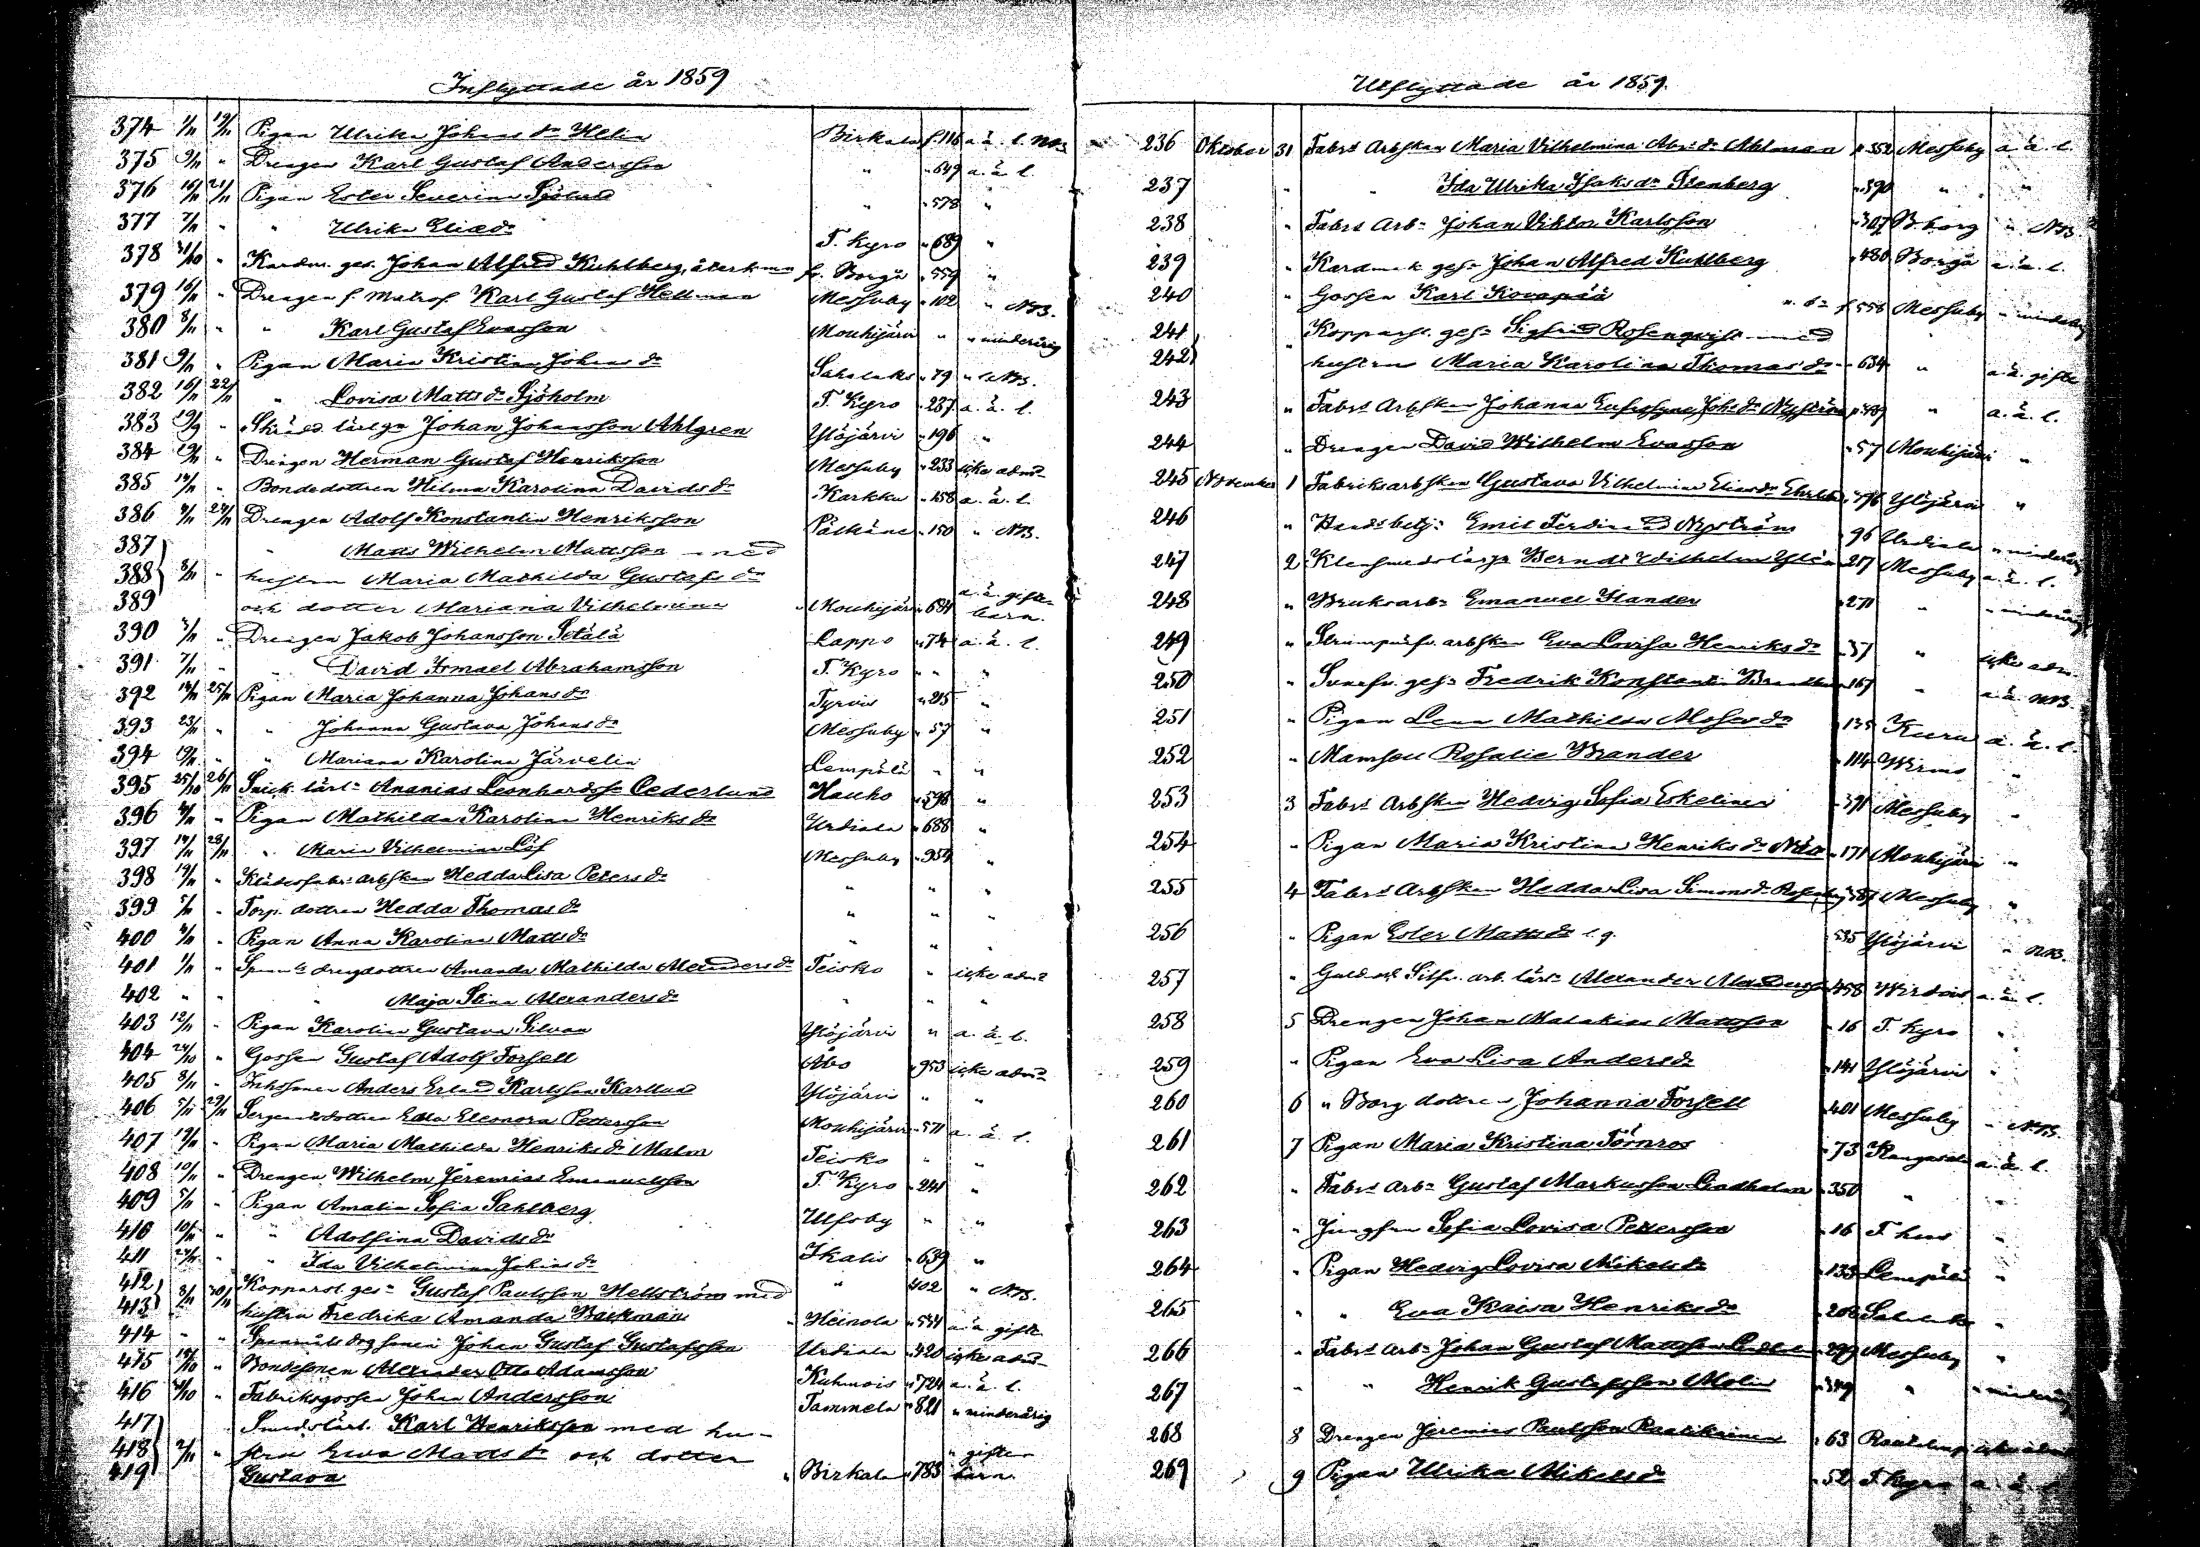 Inflyttade år 1859
374 1/11 19/11 Pigan Ulrika Johansdr Helin Birkala f. 116 a. ä. l. NB
375 9/11 " Drengen Karl Gustaf Andersson " " 649 a. ä. l.
376 16/11 21/11 Pigan Ester Severina Sjölund " " 578 "
377 7/11 " " Ulrika Eliædr T. Kyro " 689 "
378 31/10 " Kardm. ges. Johan Alfred Kuhlberg, återkom fr. Borgå " 559 "
379 16/11 " Drengen f. matros Karl Gustaf Hellman Messuby " 102 " NB.
380 8/11 " " Karl Gustaf Evasson Mouhijärvi " " minderårig
381 9/11 " Pigan Maria Kristina Johansdr Sahalaks " 79 " NB.
382 16/11 22/11 " Lovisa Mattsdr Sjöholm T. Kyro " 237 a. ä. l.
383 " Skrädd. lärlgn Johan Johansson Ahlgren Ylöjärvi " 196 "
384 " Drengen Herman Gustaf Henriksson Messuby " 233 icke adm.
385 14/11 " Bondedottren Hilma Karolina Davidsdr Karkku " 158 a. ä. l.
386 Drengen Adolf Konstantin Henriksson Pälkäne " 150 " NB.
387 " Matts Wilhelm Mattsson med
388 8/11 " hustrun Maria Mathilda Gustafsdr a. ä. gifte
389 och dotter Mariana Vilhelmina " Mouhijärvi " 684 barn.
390 3/11 " Drengen Jakob Johansson Setälä Lappo " 74 a. ä. l.
391 7/11 " " David Ismael Abrahamsson T. Kyro " " "
392 14/11 25/11 Pigan Maria Johanna Johansdr Tyrvis " 215 "
393 23/11 " " Johanna Gustava Johansdr Messuby " 57 "
394 19/11 " " Mariana Karolina Järvelin Lempälä " "
395 25/10 26/11 Snick. lärl. Ananias Leonhardsson Cederlund Hauho " 598 "
396 " Pigan Mathilda Karolina Henriksdr Urdiala " 688 "
397 14/11 28/11 " Maria Vilhelmina Löf Messuby " 954 "
398 19/11 " Klädesfabr. arbskan Hedda Lisa Petersdr " " "
399 " Torp. dottren Hedda Thomasdr " " "
400 " Pigan Anna Karolina Mattsdr " " "
401 1/11 " Amanda Mathilda Alexandersdr Teisko " icke adm.
402 " " " Maja Stina Alexandersdr " " "
403 12/11 " Pigan Karolina Gustava Silvan Ylöjärvi " a. ä. l.
404 24/10 " Gossen Gustaf Adolf Forsell Åbo " 953 icke adm.
405 8/11 " Inhsonen Anders Erland Karlsson Karllund Ylöjärvi " "
406 5/11 29/11 Sergeantsdottren Edla Eleonora Pettersson Mouhijärvi " 571 a. ä. l.
407 19/11 " Pigan Maria Mathilda Henriksdr Malm Teisko " "
408 10/11 " Drengen Wilhelm Jeremias Emanuelsson T. Kyro " 241 "
409 5/11 " Pigan Amalia Sofia Sahlberg Ulfsby " "
410 " " Adolfina Davidsdr Ikalis " 639 "
411 " " Ida Vilhelmina Johansdr " 402 " NB.
412 8/11 30/11 Kopparsl. ges. Gustaf Paulsson Hellström med
413 hustru Fredrika Amanda Backman " Heinola " 534 a. ä. gifte
414 " " Johan Gustaf Gustafsson Urdiala " 420 icke adm.
415 14/10 " Bondesonen Alexander Otto Adamsson Kuhmois " 724 a. ä. l.
416 " Fabriksgossen Johan Andersson Tammela " 821 " minderårig
417 Smedslärl. Karl Henriksson med hu-
418 " stru Eva Mattsdr och dotter " gifte
419 Gustava " Birkala " 783 barn.
Utflyttade år 1859.
236 Oktober 31 Fabrs Arbskan Maria Vilhelmina Abr.dr Ahlman p. 352 Messuby a. ä. l.
237 " " Ida Ulrika Isaksdr Stenberg " 390 " "
238 " Fabrs Arb. Johan Viktor Karlsson " 307 B.borg " NB
239 " Kardmak. ges. Johan Alfred Kuhlberg " 480 Borgå a. ä. l.
240 " Gossen Karl Kovapää 558 Messuby " minderårig
241 " Kopparsl. ges. Sigfrid Rosenqvist med
242 hustrun Maria Karolina Thomasdr " 634 " a. ä. gifte
243 " Fabrs Arbskan Johanna Johsdr Nyström " 489 " a. ä. l.
244 " Drengen David Wilhelm Evasson " 57 Mouhijärvi "
245 November 1 Fabriksarbskan Gustava Vilhelmina Eliasdr 376 Ylöjärvi "
246 " Handsbetj. Emil Ferdinand Nyström " 96 Urdiala " minderårig
247 2 Klensmedslärg. Berndt Wilhelm 217 Messuby a. ä. l.
248 " Bruksarb. Emanuel Stander " 271 " " minderårig
249 " arbskan Eva Lovisa Henriksdr " 37 " icke adm.
250 " ges. Fredrik Konstantin 167 " a. ä. NB.
251 " Pigan Lena Mathilda Mosesdr " 135 Kuru a. ä. l.
252 " Mamsell Rosalie Brander " 114 Wirmo "
253 3 Fabrs Arbskan Hedvig Sofia Eskelinen " 371 Messuby "
254 " Pigan Maria Kristina Henriksdr " 171 Mouhijärvi "
255 4 Fabrs Arbskan Hedda Lisa Simonsdr 387 Messuby "
256 " Pigan Ester Mattsdr l. g. 535 Ylöjärvi " NB.
257 " Guld och Silfv. arb. lärl. Alexander 458 Wirdois a. ä. l.
258 5 Drengen Johan Malakias Mattsson " 16 T. Kyro "
259 " Pigan Eva Lisa Andersdr " 141 Ylöjärvi "
260 6 " Borg dottren Johanna Forsell " 401 Messuby " NB.
261 7 Pigan Maria Kristina Törnros " 73 Kangasala a. ä. l.
262 " Fabrs Arb. Gustaf Markusson Lindholm " 350 " "
263 " Jungfrun Sofia Lovisa Pettersson " 16 T. hus "
264 " Pigan Hedvig Lovisa Mikelsdr " 133 Lempälä "
265 " " Eva Kaisa Henriksdr " 208 Sahalaks "
266 " Fabrs Arb. Johan Gustaf Mattsson 299 Messuby "
267 " " Henrik Gustafsson Molin " 349 " " minderårig
268 8 Drengen Jeremias Paulsson Raatikainen " 63 Rautalampi icke adm.
269 9 Pigan Ulrika Mikelsdr " 52 T. Kyro a. ä. l.